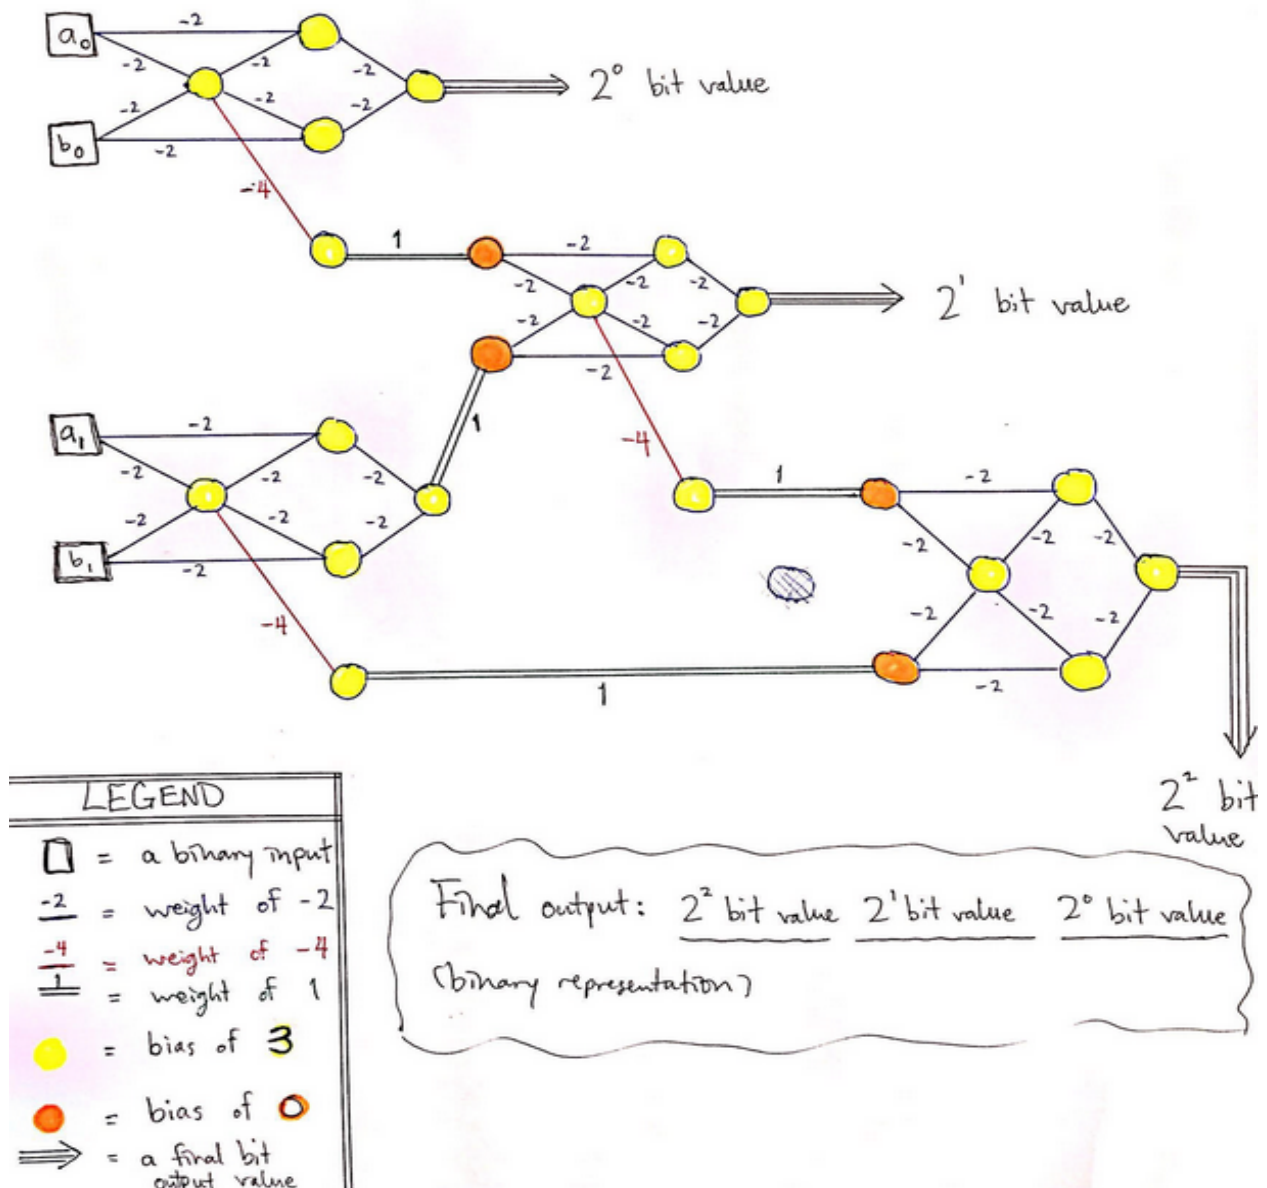 -2
a₀
-2
-2
-2
2⁰ bit value
-2
-2
-2
b₀
-2
-4
1
-2
-2
-2
-2
2¹ bit value
-2
-2
-2
-2
1
a₁
-2
-2
-2
-2
-4
1
-2
-2
-2
-2
b₁
-2
-2
-2
-2
-2
-2
-2
-4
1
-2
2² bit
value
LEGEND
= a binary input
-2 = weight of -2
-4 = weight of -4
1 = weight of 1
= bias of 3
= bias of 0
= a final bit
output value
Final output: 2² bit value 2¹ bit value 2⁰ bit value
(binary representation)